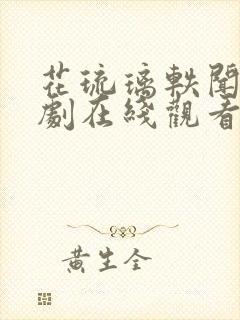 花琉璃軼聞
劇在綫觀看
黃生全